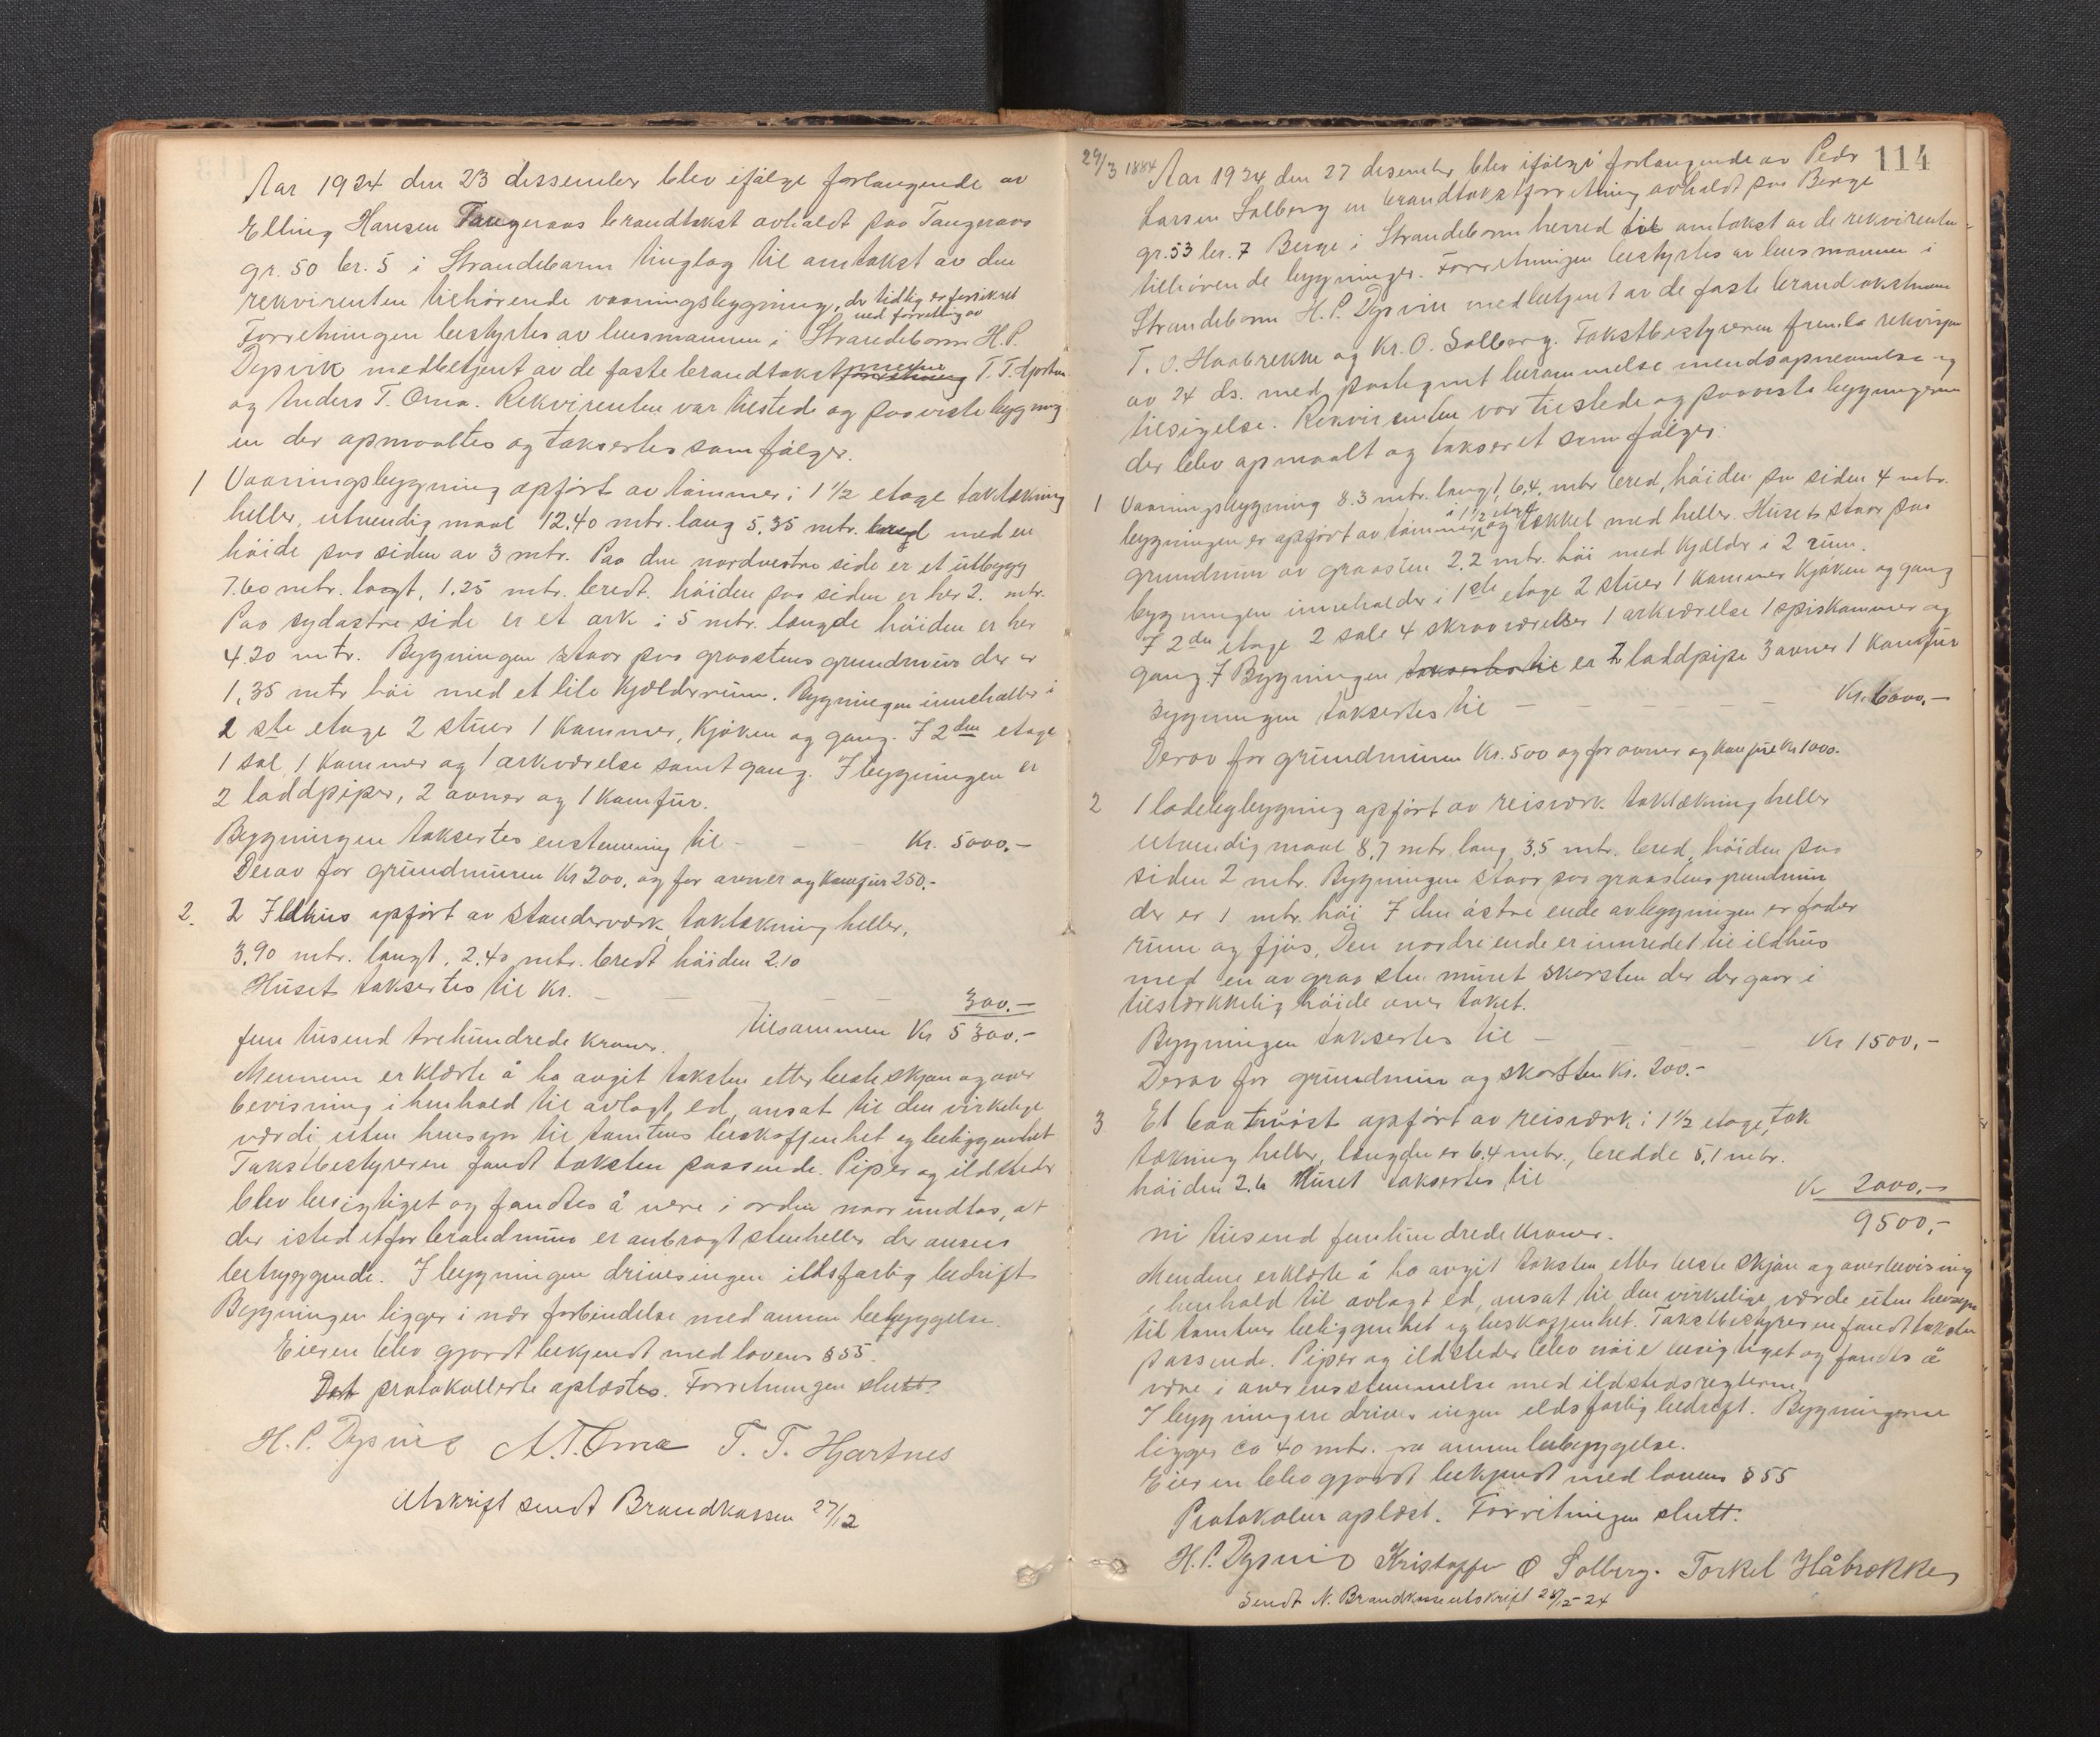 Aar 1924 den 23 dessember blev ifølge forlangende av
Elling Hansen Tangeraas brandtakst avholdt paa Tangeraas
gr. 50 br. 5 i Strandebarm tinglag til omtakst av den
rekvirenten tilhørende vaaningsbygning, der tidlig er forsikret
ved forretning av
Forretningen bestyrtes av lensmannen i Strandebarm H.P.
Dysvik medbetjent av de faste brandtakstmænd forretning T. T. Hjartnes
og Anders T. Oma. Rekvirenten var tilstede og paaviste bygning
en der opmaaltes og taksertes som følger.
1 Vaaningsbygning opført av tømmer i 1 1/2 etage taktækning
heller, utvendig maal 12.40 mtr. lang 5,35 mtr. bred med en
høide paa siden av 3 mtr. Paa den nordvestre side er et utbygg
7.60 mtr. langt, 1.25 mtr. bredt. høiden paa siden er her 2. mtr.
Paa sydøstre side er et ark i 5 mtr. længde høiden er her
4.20 mtr. Bygningen staar paa graastens grundmur der er
1,35 mtr høi med et lite kjælderrum. Bygningen inneholder i
1 ste etage 2 stuer 1 kammer, kjøken og gang. I 2den etage
1 sal, 1 kammer og 1 arkværelse samt gang. I bygningen er
2 laddpiper, 2 ovner og 1 komfur.
Bygningen taksertes enstemmig til - - - Kr. 5000.-
Derav for grundmuren Kr 200, og for ovner og komfur 250.-
2. 1 Ildhus opført av standerværk taktækning heller,
3,90 mtr. langt, 2.40 mtr. bredt høiden 2.10
Huset taksertes til Kr. - - - - 300.-
fem tusend trehundrede kroner. tilsammen Kr 5300.-
Mennene erklærte å ha avgit taksten etter beste skjøn og over
bevisning i henhold til avlagt ed, ansat til den virkelige
værdi uten hensyn til tomtens beskaffenhet og beliggenhet
Takstbestyreren fandt taksten passende. Piper og ildsteder
blev besigtiget og fandtes å være i orden naar undtas, at
der istedetfor brandmur er anbragt stenheller der ansees
betryggende. I bygningen drives ingen ildsfarlig bedrift
Bygningen ligger i nær forbindelse med annen bebyggelse.
Eieren blev gjordt bekjendt med lovens § 55.
Det protokollerte oplæstes. Forretningen slutt.
H. P. Dysvik A. T. Oma T. T. Hjartnes
Utskrift sendt Brandkassen 27/12
114
29/3 1884
Aar 1924 den 27 desember blev ifølge forlangende av Peder
Larsen Solberg en brandtakstforretning avholdt paa Berge
gr. 53 br. 7 Berge i Strandebarm herred til omtakst av de rekvirenten
tilhørende bygninger. Forretningen bestyrtes av lensmannen i
Strandebarm H. P. Dysvik medbetjent av de faste brandtakstmenn
T. O. Haabrekke og Kr. O. Solberg. Takstbestyreren fremla rekvisjon
av 24 ds. med paategnet berammelse mendsopnevnelse og
tilsigelse. Rekvirenten var tilstede og paaviste bygningerne
der blev opmaalt og taksert som følger.
1 Vaaningsbygning 8.3 mtr. langt, 6,4, mtr bred, høiden paa siden 4 mtr.
i 1 1/2 etage
bygningen er opført av tømmer, og tækket med heller. Huset staar paa
grundmur av graasten 2.2 mtr. høi med kjælder i 2 rum.
bygningen inneholder i 1ste etage 2 stuer 1 kammer kjøken og gang
I 2den etage 2 sale 4 skraaværelser 1 arkværelse 1 spiskammer og
gang. I Bygningen taksertes til er 2 laddpipe 3 ovner 1 komfur
Bygningen taksertes til - - - - - Kr. 6000,-
Derav for grundmuren Kr. 500 og for ovner og komfur Kr 1000.
2 1 ladebygbygning opført av reisværk taktækning heller
utvendig maal 8,7 mtr lang, 3,5 mtr. bred, høiden paa
siden 2 mtr. Bygningen staar paa graastens grundmur
der er 1 mtr. høi I den østre ende av bygningen er foder
rum og fjøs, Den nordre ende er innredet til ildhus
med en av graasten muret skorsten der der gaar i
tilstrækkelig høide over taket.
Bygningen taksertes til - - - Kr 1500,-
Derav for grundmur og skorsten Kr. 200.-
3 Et baatnøst opført av reisværk i 1 1/2 etage, tak
tækning heller, længden er 6.4 mtr., bredde 5,1 mtr.
høiden 2.6 Huset taksertes til Kr 2000,-
ni tusend femhundrede kroner. 9500,-
Mendene erklærte å ha avgit taksten etter beste skjøn og overbevisning
i henhold til avlagt ed, ansat til den virkelige værde uten hensyn
til tomtens beliggenhet og beskaffenhet. Takstbestyreren fandt taksten
passende. Piper og ildsteder blev nøie besigtiget og fandtes å
være i overensstemmelse med ildstedsreglerne.
I bygningen drives ingen ildsfarlig bedrift. Bygningerne
ligger ca 40 mtr. fra annen bebyggelse.
Eieren blev gjordt bekjendt med lovens § 55
Protokolen oplæst. Forretningen slutt.
H. P. Dysvik Kristoffer O Solberg. Torkel Håbrekke
Sendt N. Brandkasse utskrift 28/12-24